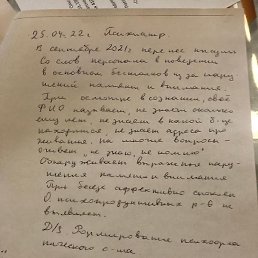 25.04.22г. Психиатр.
В сентябре 2021г перенес инсульт
Со слов персонала в поведении
в основном бестолков из за нару
шений памяти и внимания.
При осмотре в сознании, своё
ФИО называет, не знает сколько
ему лет, не знает в какой б-це
находится, не знает адреса про
живания, на многие вопросы
отвечает „не знаю, не помню"
Обнаруживает выраженные нару
шения памяти и внимания
При беседе аффективно спокоен
О психопродуктивных р-в не
выявляет.
D/S Формирование психоорга
нического с-ма